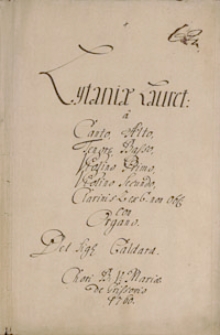 Lytaniæ Lauret:
à
Canto, Alto,
Tenore Basso,
Violino Primo,
Violino Secundo,
Clarinis 2 ex C. non obl:
con
Organo.
Del Sigre Caldara.
Chori B. V. Mariæ
de
1746.